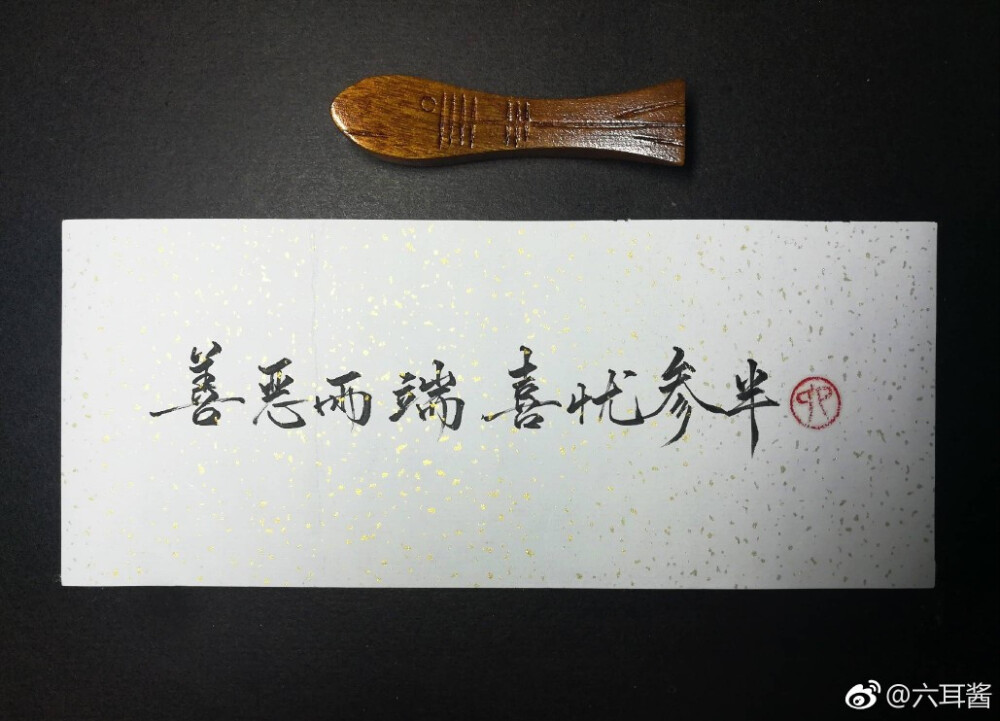 善恶两端 喜忧参半
@六耳酱